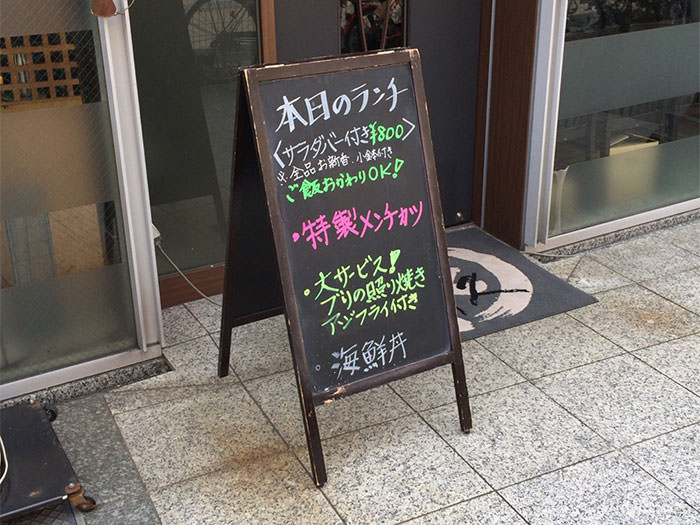 本日のランチ
〈サラダバー付き¥800〉
※全品お新香、小鉢付き
ご飯おかわりOK!
・特製メンチカツ
・大サービス!
ブリの照り焼き
アジフライ付き
・海鮮丼